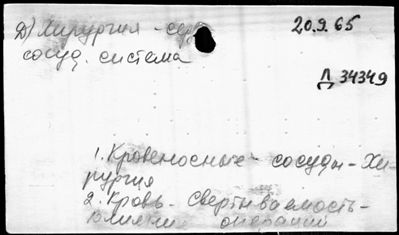 Д) Хирургия - сер
20.9.65
сосуд. система
Д 34349
1. Кровеносные - сосуды - Хи-
рургия
2. Кровь - свертываемость -
влияни операций